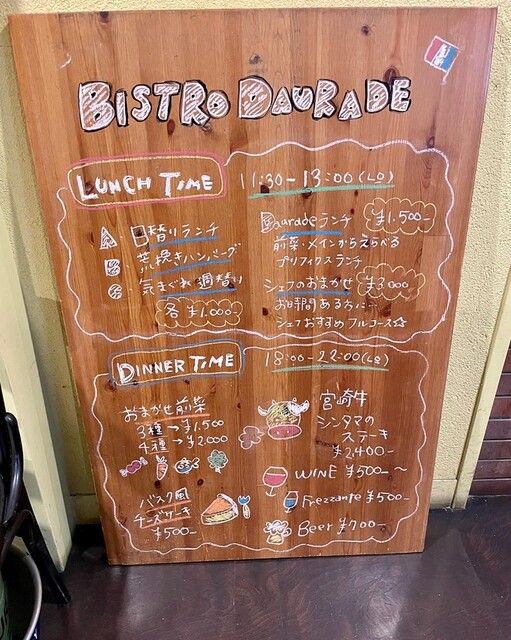 BISTRO DAURADE
LUNCH TIME
11:30-13:00(LO)
A: 日替りランチ
B: 荒挽きハンバーグ
C: 気まぐれ週替り
各¥1.000-
Dauradeランチ
¥1.500-
前菜・メインからえらべる
プリフィクスランチ
シェフのおまかせ
¥3.000
お時間ある方に…
シェフおすすめフルコース☆
DINNER TIME
18:00-22:00(LO)
おまかせ前菜
3種→¥1.500
4種→¥2.000
バスク風
チーズケーキ
¥500-
宮崎牛
シンタマの
ステーキ
¥2.400-
WINE ¥500-~
Frezzante ¥500-
Beer ¥700-